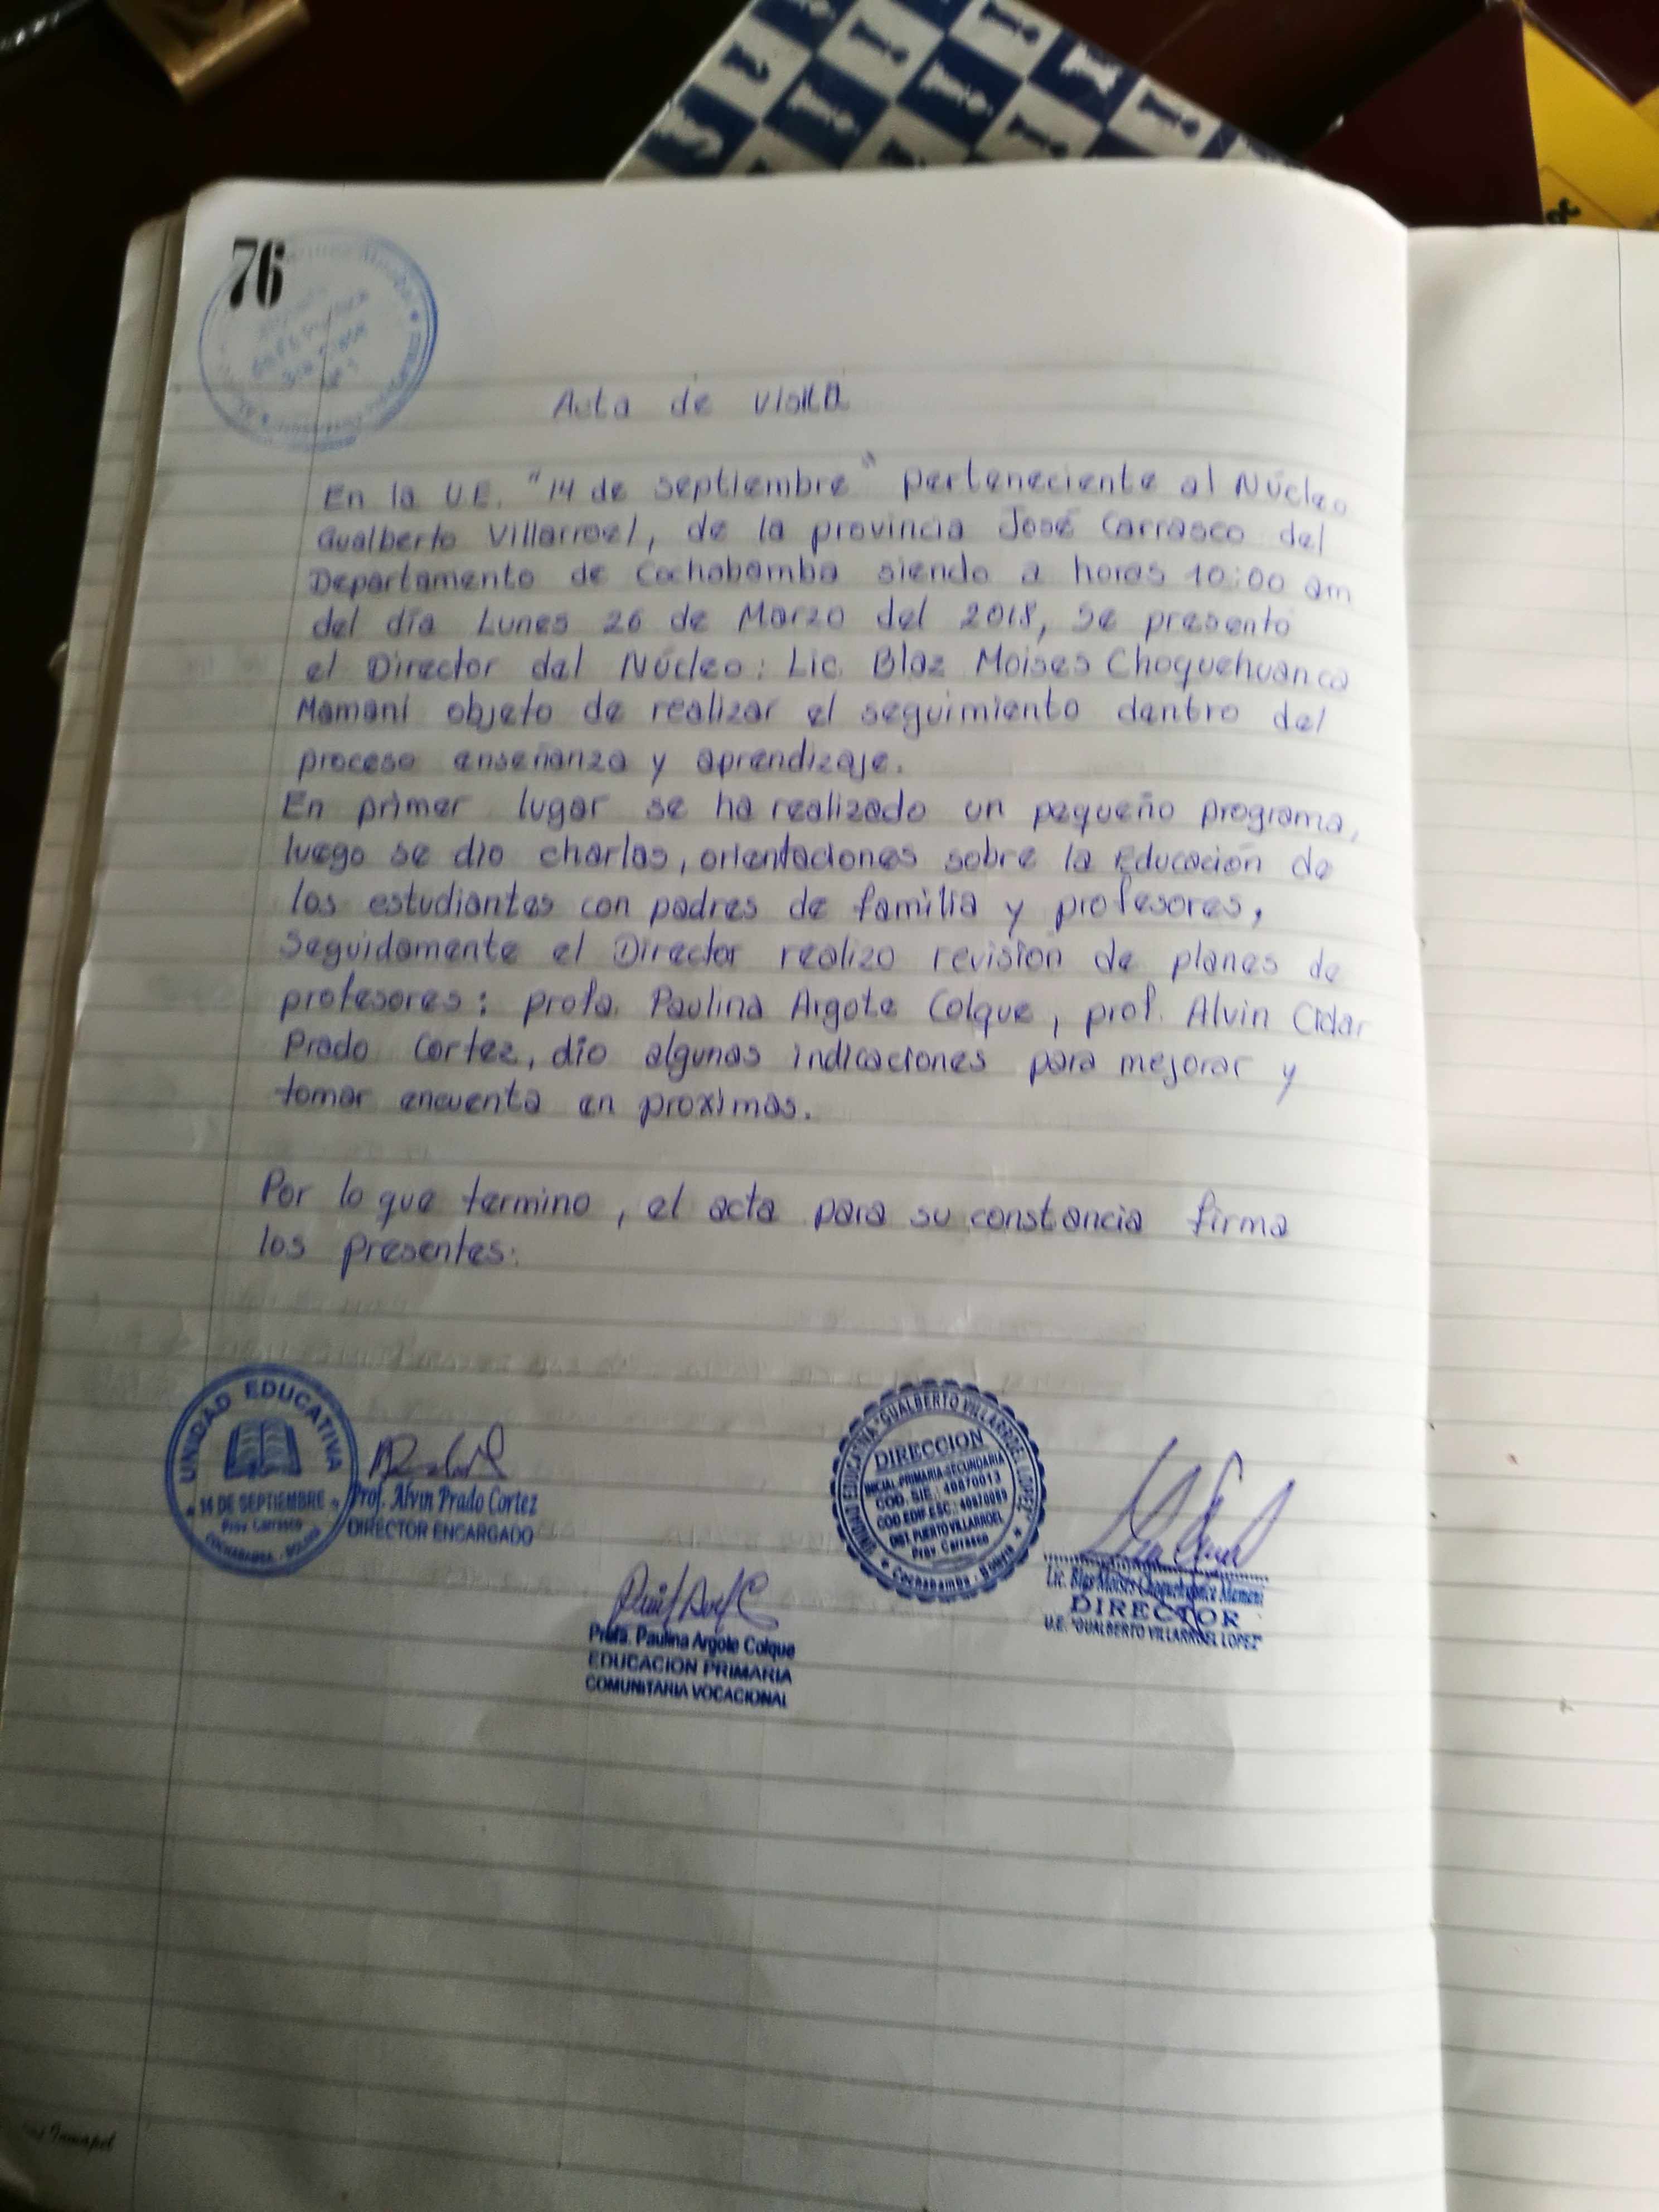 76
Acta de visita
En la U.E. "14 de septiembre" perteneciente al Núcleo
Gualberto Villarroel, de la provincia José Carrasco del
Departamento de Cochabamba siendo a horas 10:00 am
del día Lunes 26 de Marzo del 2018, se presentó
el Director del Núcleo: Lic. Blaz Moises Choquehuanca
Mamani objeto de realizar el seguimiento dentro del
proceso enseñanza y aprendizaje.
En primer lugar se ha realizado un pequeño programa,
luego se dio charlas, orientaciones sobre la Educación de
los estudiantes con padres de familia y profesores,
Seguidamente el Director realizo revisión de planes de
profesores: profa. Paulina Argote Colque, prof. Alvin Cidar
Prado Cortez, dio algunas indicaciones para mejorar y
tomar encuenta en proximas.
Por lo que termino, el acta para su constancia firma
los presentes:
UNIDAD EDUCATIVA
14 DE SEPTIEMBRE
Prov. Carrasco
COCHABAMBA - BOLIVIA
Prof. Alvin Prado Cortez
DIRECTOR ENCARGADO
UNIDAD EDUCATIVA "GUALBERTO VILLARROEL LOPEZ"
DIRECCION
INICIAL-PRIMARIA-SECUNDARIA
COD. SIE.: 40870013
COD. EDIF. ESC.: 40870089
DIST. PUERTO VILLARROEL
Prov. Carrasco
Cochabamba - Bolivia
Lic. Blas Moises Choquehuanca Mamani
DIRECTOR
U.E. "GUALBERTO VILLARROEL LOPEZ"
Profa. Paulina Argote Colque
EDUCACION PRIMARIA
COMUNITARIA VOCACIONAL